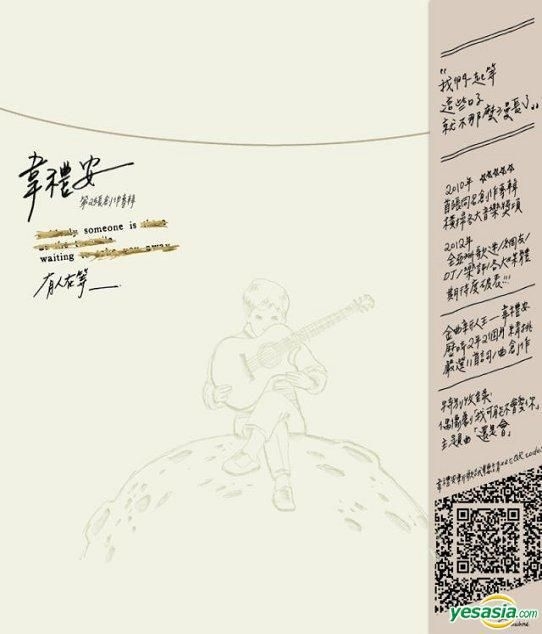 韋禮安
第2張創作專輯
someone is
waiting to
有人在等
“我們一起等
這些日子
就不那麼漫長了”
2010年 ☆☆☆☆☆
首張同名創作專輯
橫掃各大音樂獎項
2012年
全亞洲歌迷/網友/
DJ/樂評/各大媒體
期待度破表!!!
金曲新人王—韋禮安
歷時2年2個月精挑
嚴選11首詞/曲創作
特別收錄
偶像劇「我可能不會愛你」
主題曲「還是會」
韋禮安 QR code:
yesasia.com